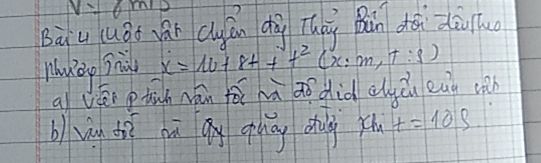 V = 8 m/s
Bài 4 Một vật chuyển động thẳng biến đổi đều theo
phương trình x = 10 + 8t + t² (x: m, t: s)
a) Viết p trình vận tốc và độ dịch chuyển của vật
b) Vận tốc và quãng đường khi t = 10s